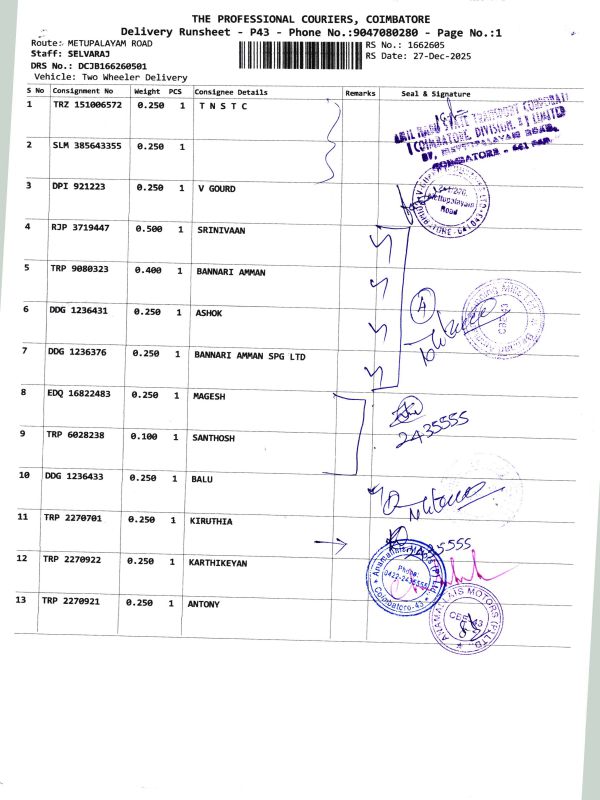 THE PROFESSIONAL COURIERS, COIMBATORE
Delivery Runsheet - P43 - Phone No.:9047080280 - Page No.:1
Route: METUPALAYAM ROAD
RS No.: 1662605
Staff: SELVARAJ
RS Date: 27-Dec-2025
DRS No.: DCJB166260501
Vehicle: Two Wheeler Delivery
S No Consignment No Weight PCS Consignee Details Remarks Seal & Signature
1 TRZ 151006572 0.250 1 T N S T C
TAMIL NADU STATE TRANSPORT CORPORATI
(COIMBATORE, DIVISION. LIMITED
METTUPALAYAM ROAD,
COIMBATORE - 641
2 SLM 385643355 0.250 1
3 DPI 921223 0.250 1 V GOURD
Mettupalayam
Road
4 RJP 3719447 0.500 1 SRINIVAAN
5 TRP 9080323 0.400 1 BANNARI AMMAN
6 DDG 1236431 0.250 1 ASHOK
A
CBE-43
7 DDG 1236376 0.250 1 BANNARI AMMAN SPG LTD
8 EDQ 16822483 0.250 1 MAGESH
2435555
9 TRP 6028238 0.100 1 SANTHOSH
10 DDG 1236433 0.250 1 BALU
11 TRP 2270701 0.250 1 KIRUTHIA
12 TRP 2270922 0.250 1 KARTHIKEYAN
Phone:
0422-2435555
Coimbatore-43
13 TRP 2270921 0.250 1 ANTONY
ANAMALLAIS MOTORS (P) LTD.
CBE-43